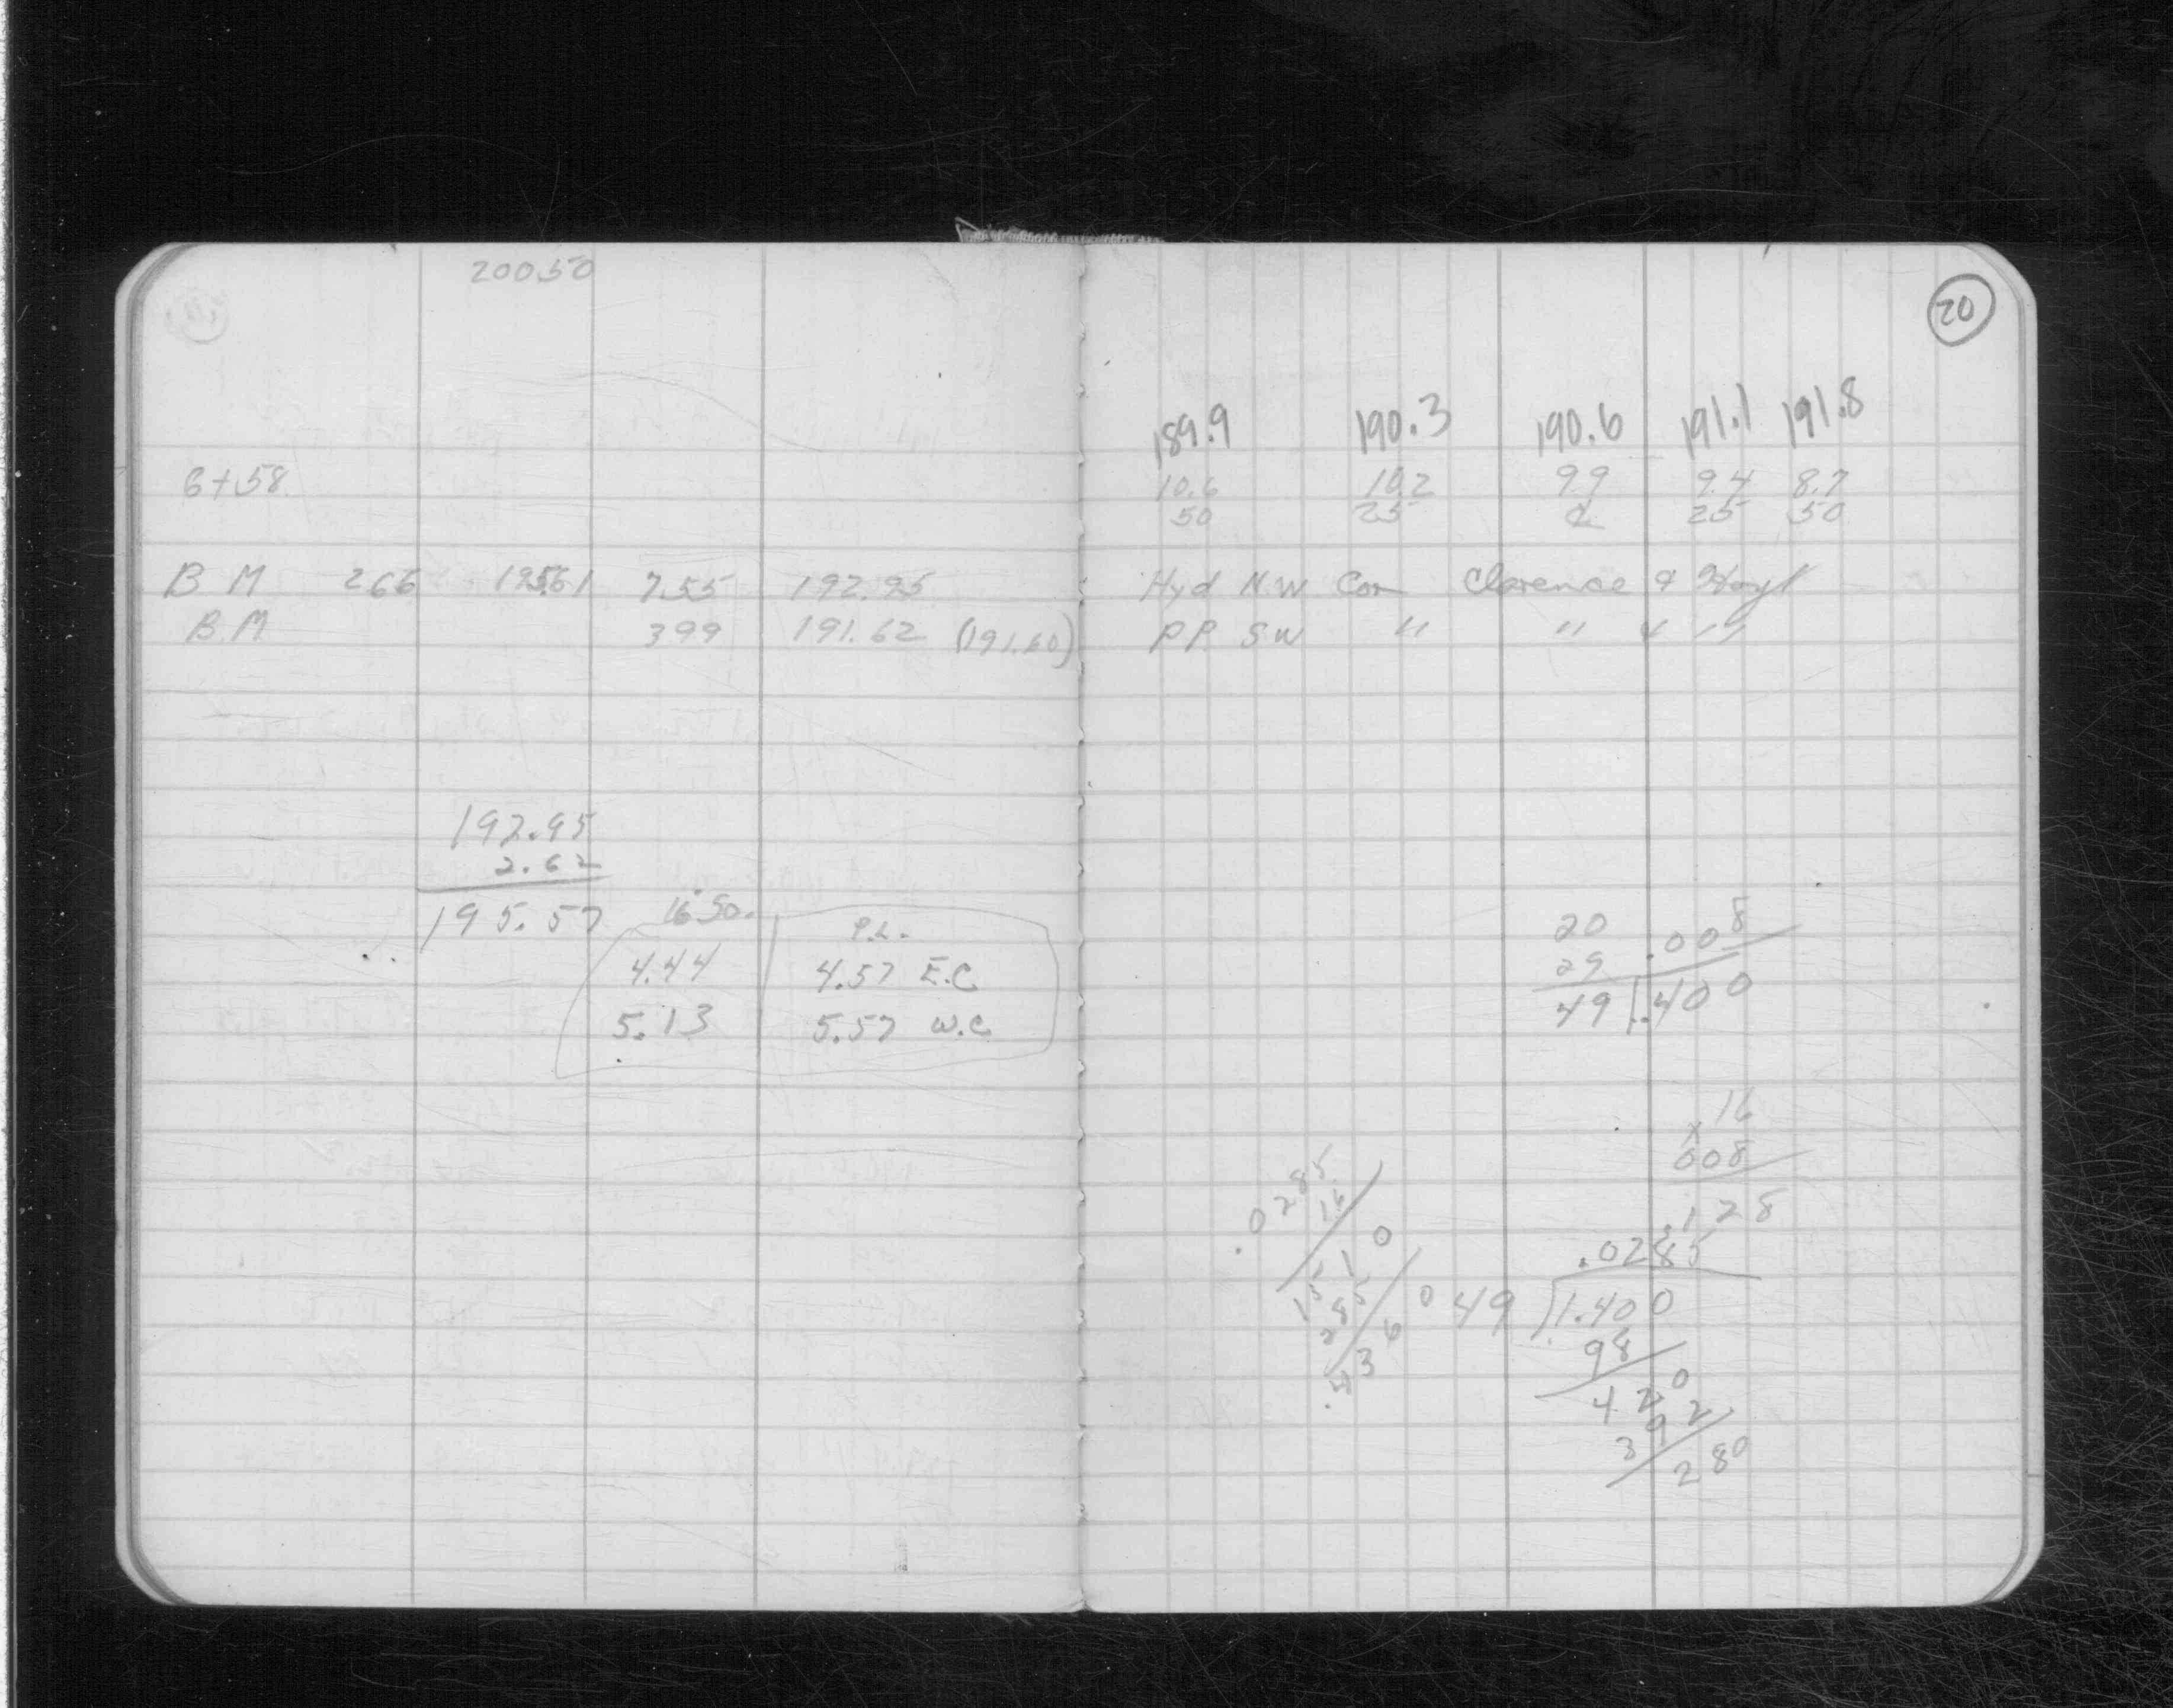 200.50
20
189.9 190.3 190.6 191.1 191.8
6+58 10.6 10.2 9.9 9.4 8.7
50 25 ℄ 25 50
B M 2.66 195.61 7.55 192.95 Hyd N.W Cor Clarence & Hoyt
B.M 3.99 191.62 (191.60) P.P. S W " " & "
192.95
2.62
195.57
16.50.
P.L.
4.44 4.57 E.C
5.13 5.57 W.C
20 .008
29
49 .400
16
x
008
.128
.0285
16
1510
285
.4360
.0285
49 1.400
98
420
392
280